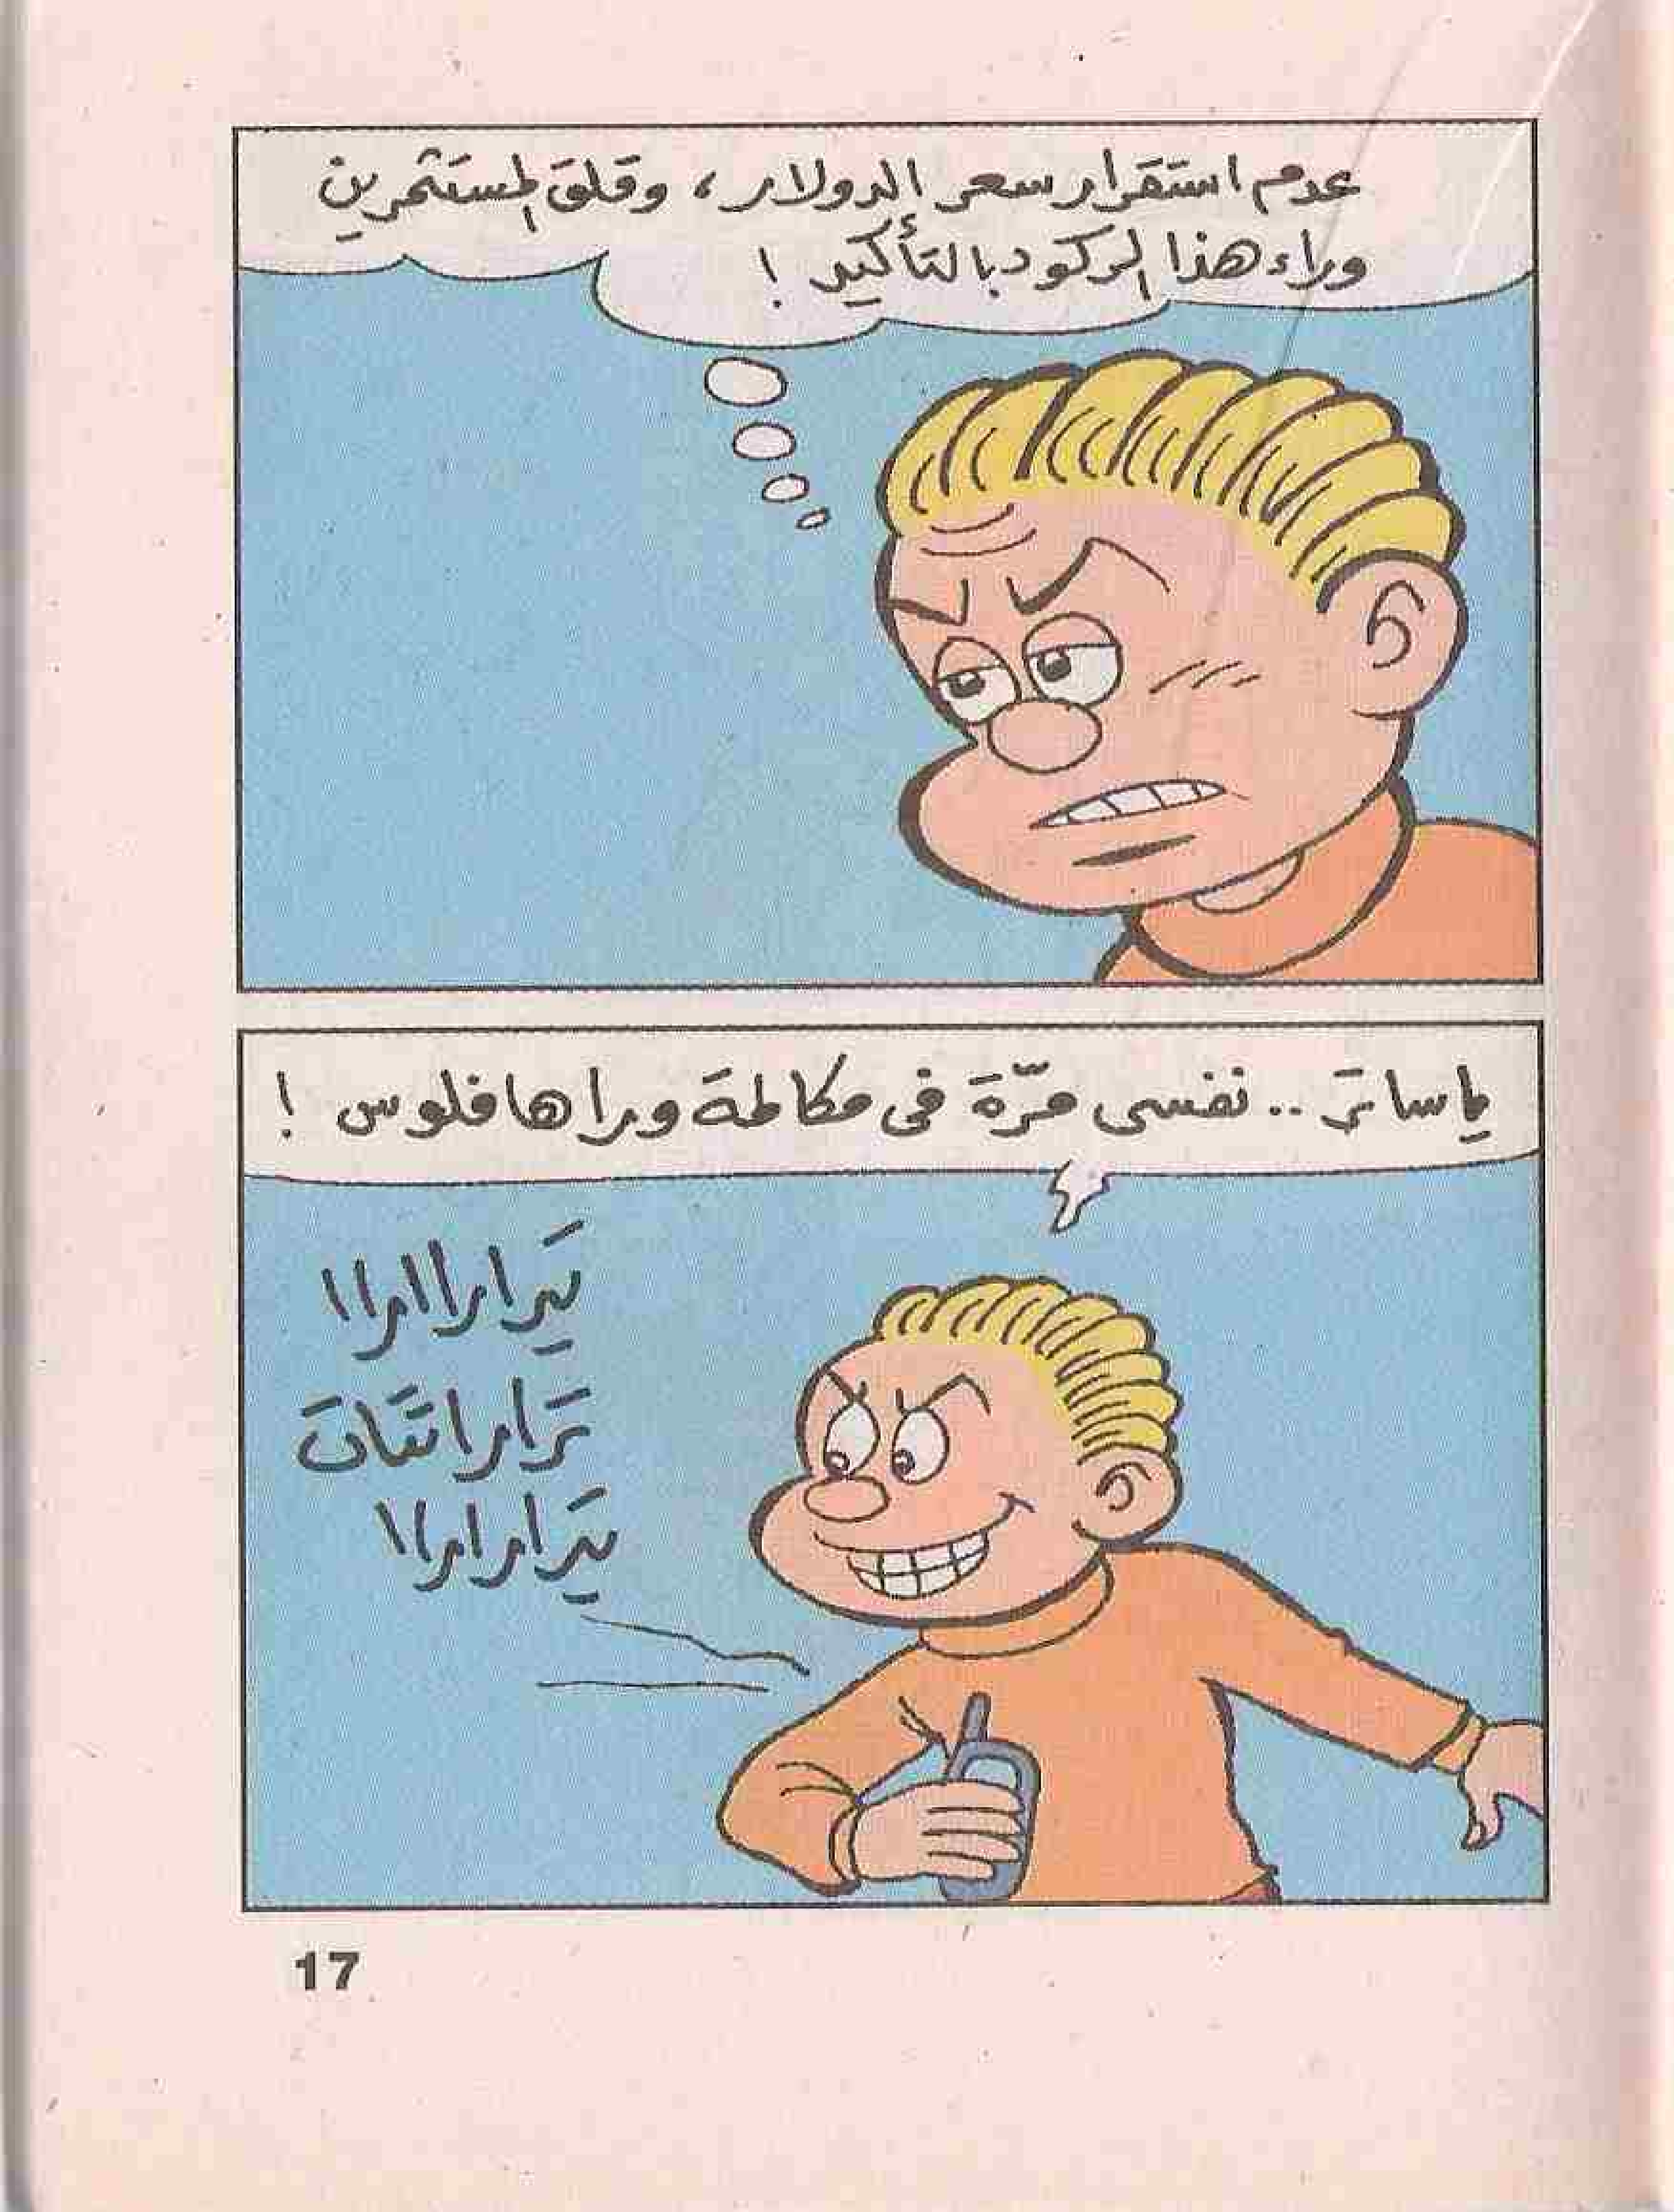 عدم استقرار سعر الدولار، وقلق المستثمرين
وراء هذا الركود بالتأكيد !
يا ساتر .. نفسى مرّة فى مكالمة وراها فلوس !
تيرارااراا
ترارانتات
تيراراراا
17